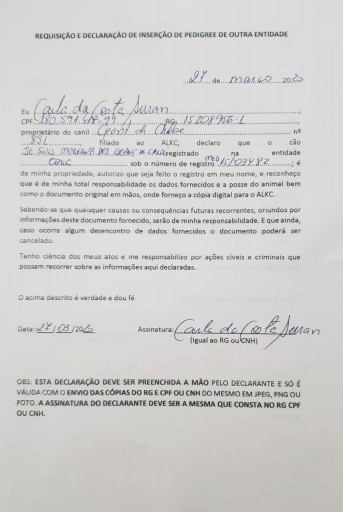 REQUISIÇÃO E DECLARAÇÃO DE INSERÇÃO DE PEDIGREE DE OUTRA ENTIDADE
27 de março 2020
Eu Carla da Costa Surian
CPF RG: 15208956-L
proprietário do canil nº
filiado ao ALKC, declaro que o cão
registrado na entidade
CBKC sob o número de registro ; é
de minha propriedade, autorizo que seja feito o registro em meu nome, e reconheço
que é de minha total responsabilidade os dados fornecidos e a posse do animal bem
como o documento original em mãos, onde forneço a cópia digital para o ALKC.
Sabendo-se que quaisquer causas ou consequências futuras recorrentes, oriundos por
informações deste documento fornecido, serão de minha responsabilidade. E que ainda,
caso ocorra algum desencontro de dados fornecidos o documento poderá ser
cancelado.
Tenho ciência dos meus atos e me responsabilizo por ações cíveis e criminais que
possam recorrer sobre as informações aqui declaradas.
O acima descrito é verdade e dou fé
Data: 27/03/2020 Assinatura: Carla da Costa Surian
(Igual ao RG ou CNH)
OBS: ESTA DECLARAÇÃO DEVE SER PREENCHIDA A MÃO PELO DECLARANTE E SÓ É
VÁLIDA COM O ENVIO DAS CÓPIAS DO RG E CPF OU CNH DO MESMO EM JPEG, PNG OU
FOTO. A ASSINATURA DO DECLARANTE DEVE SER A MESMA QUE CONSTA NO RG CPF
OU CNH.